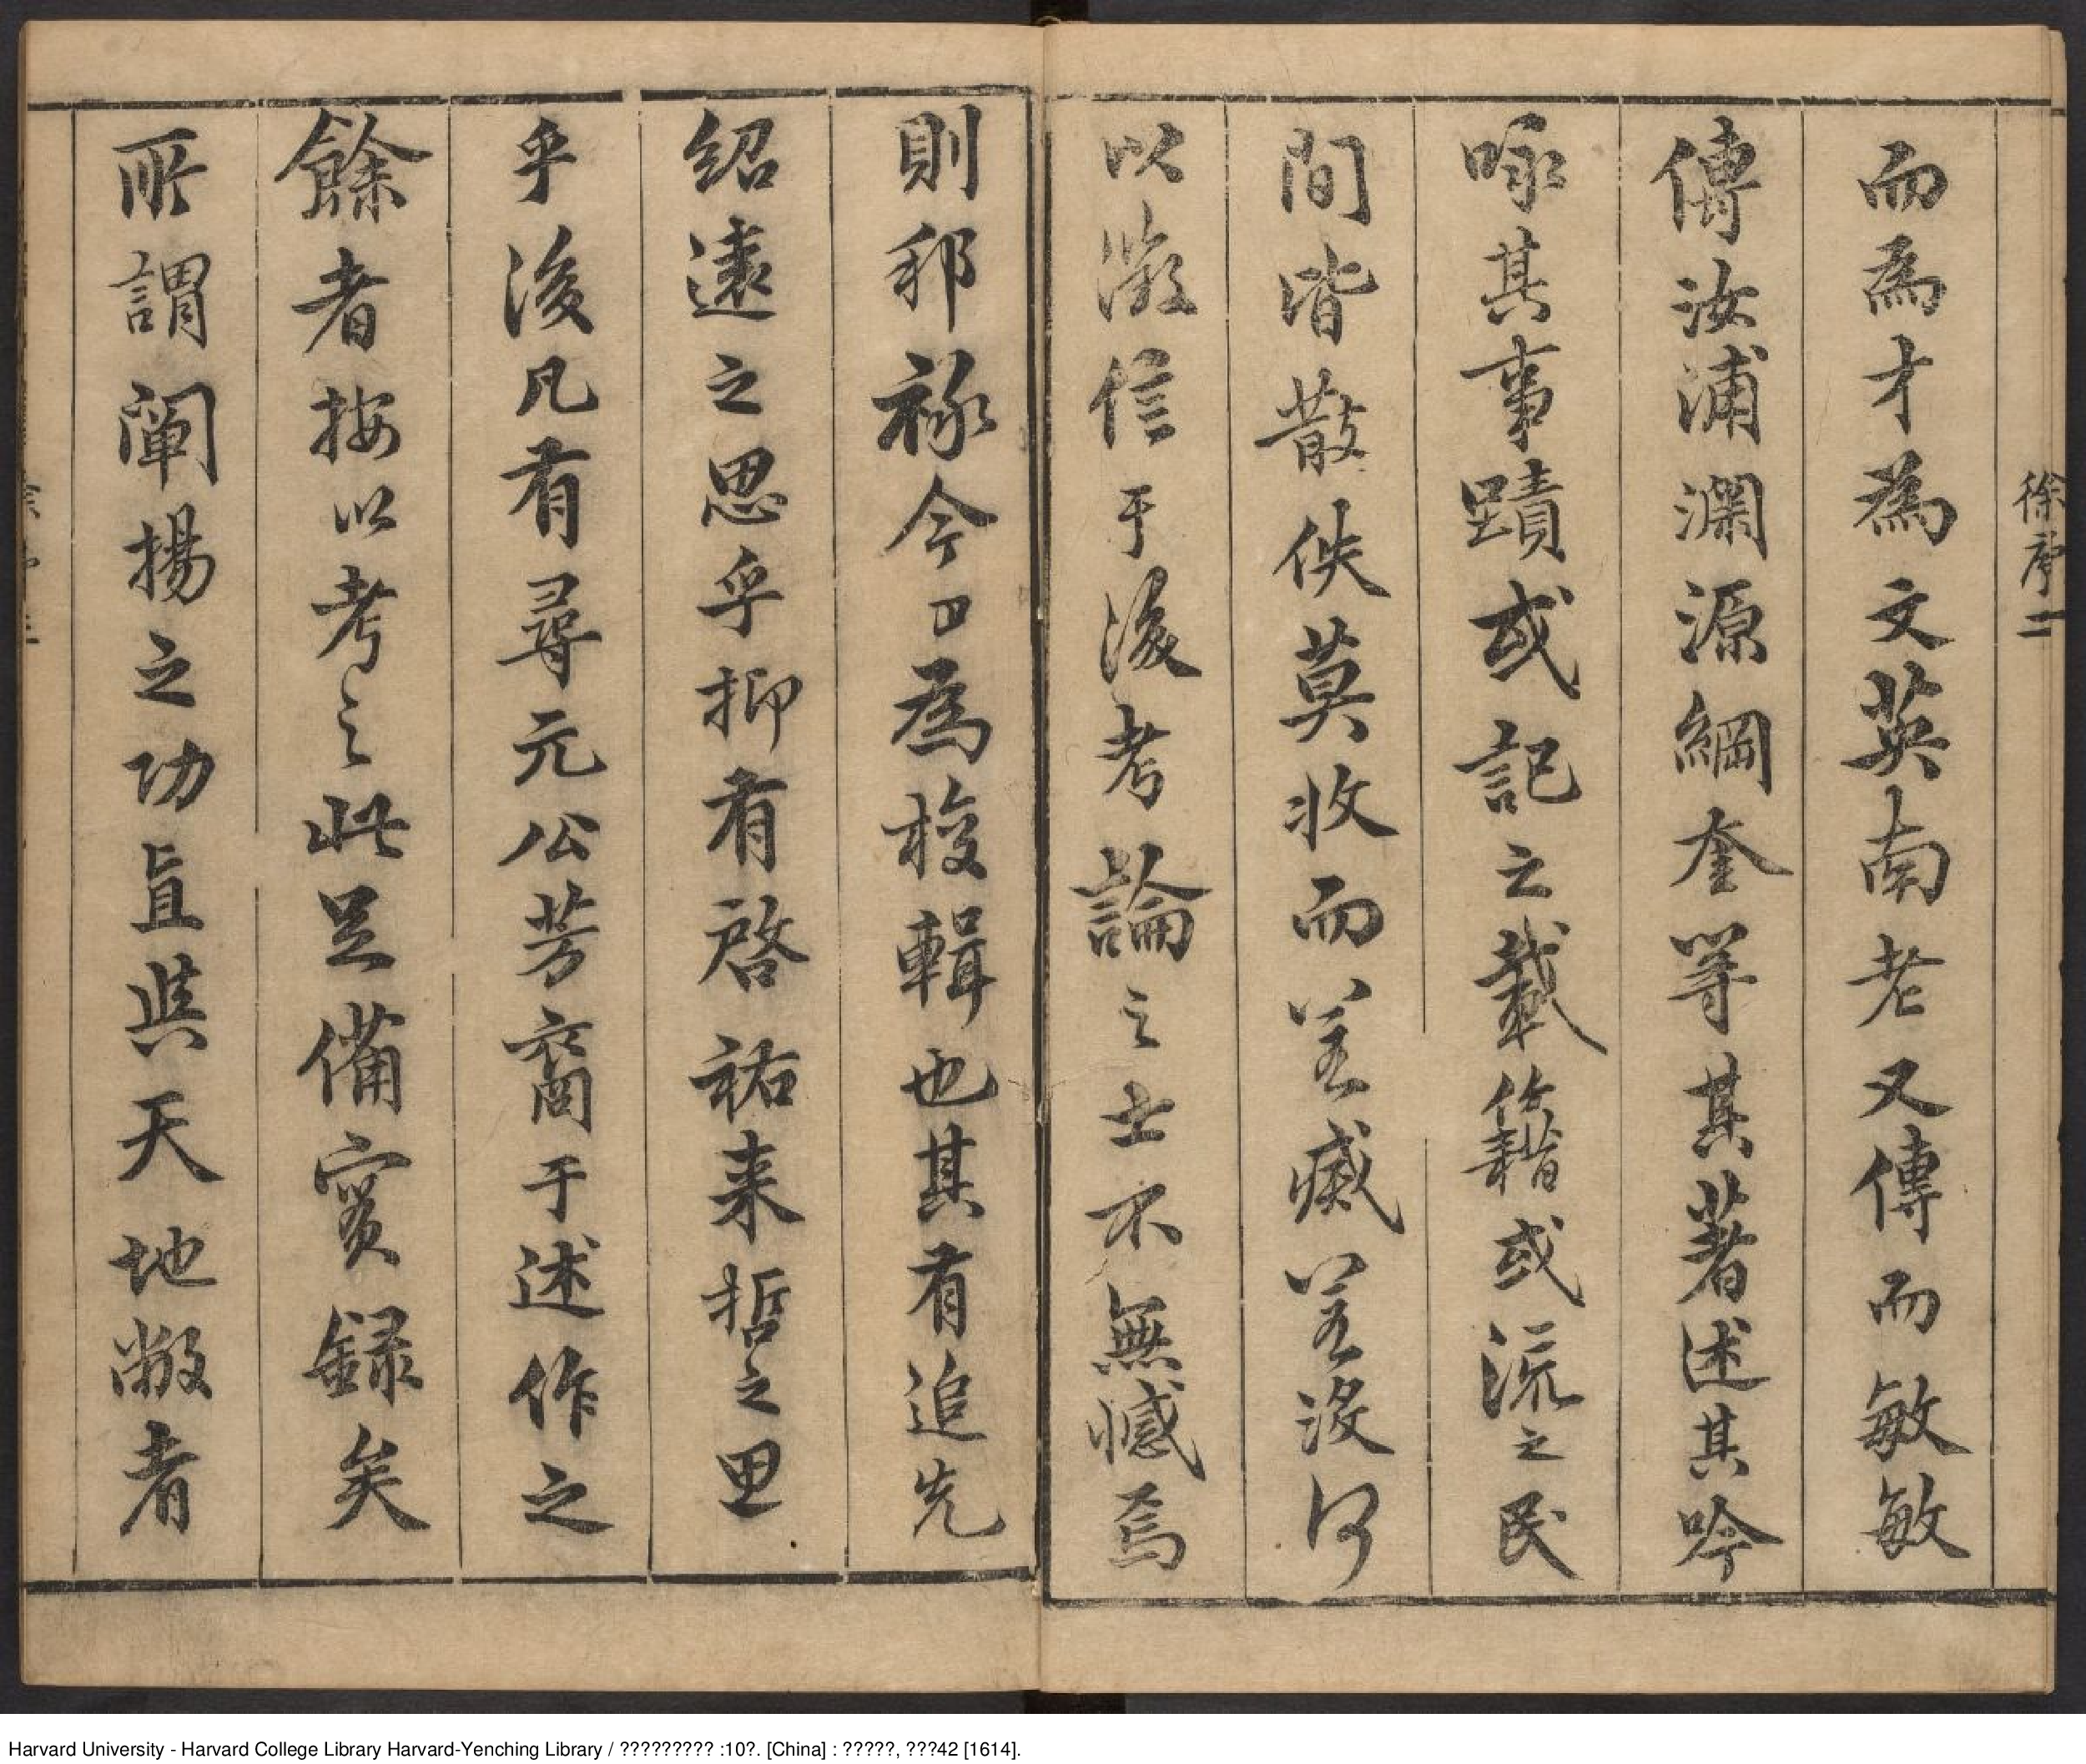 徐序二
而為才為文英南老又傳而敏敏
傳汝浦澜源綱奎等其著述其吟
咏其事蹟或記之載籍或流之民
間皆散佚莫收而羙臧羙沒何
以徵信于後考論之士不無憾焉
則邦祿今日為梭輯也其有追先
紹遠之思乎抑有啓祐来哲之思
乎後凡有尋元公芳裔于述作之
餘者按以考之此足備實録矣
所謂阐揚之功直與天地敝者
Harvard University - Harvard College Library Harvard-Yenching Library / ????????? :10?. [China] : ?????, ???42 [1614].